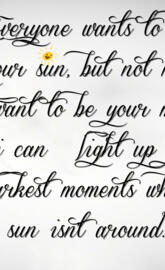 everyone wants to
your sun, but not
want to be your
i can light up
darkest moments
sun isnt around.